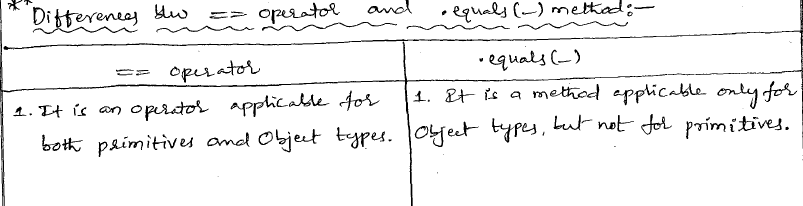 ** Differences b/w == operator and .equals(_) method:—
== operator
.equals(_)
1. It is an operator applicable for
both primitives and Object types.
1. It is a method applicable only for
Object types, but not for primitives.